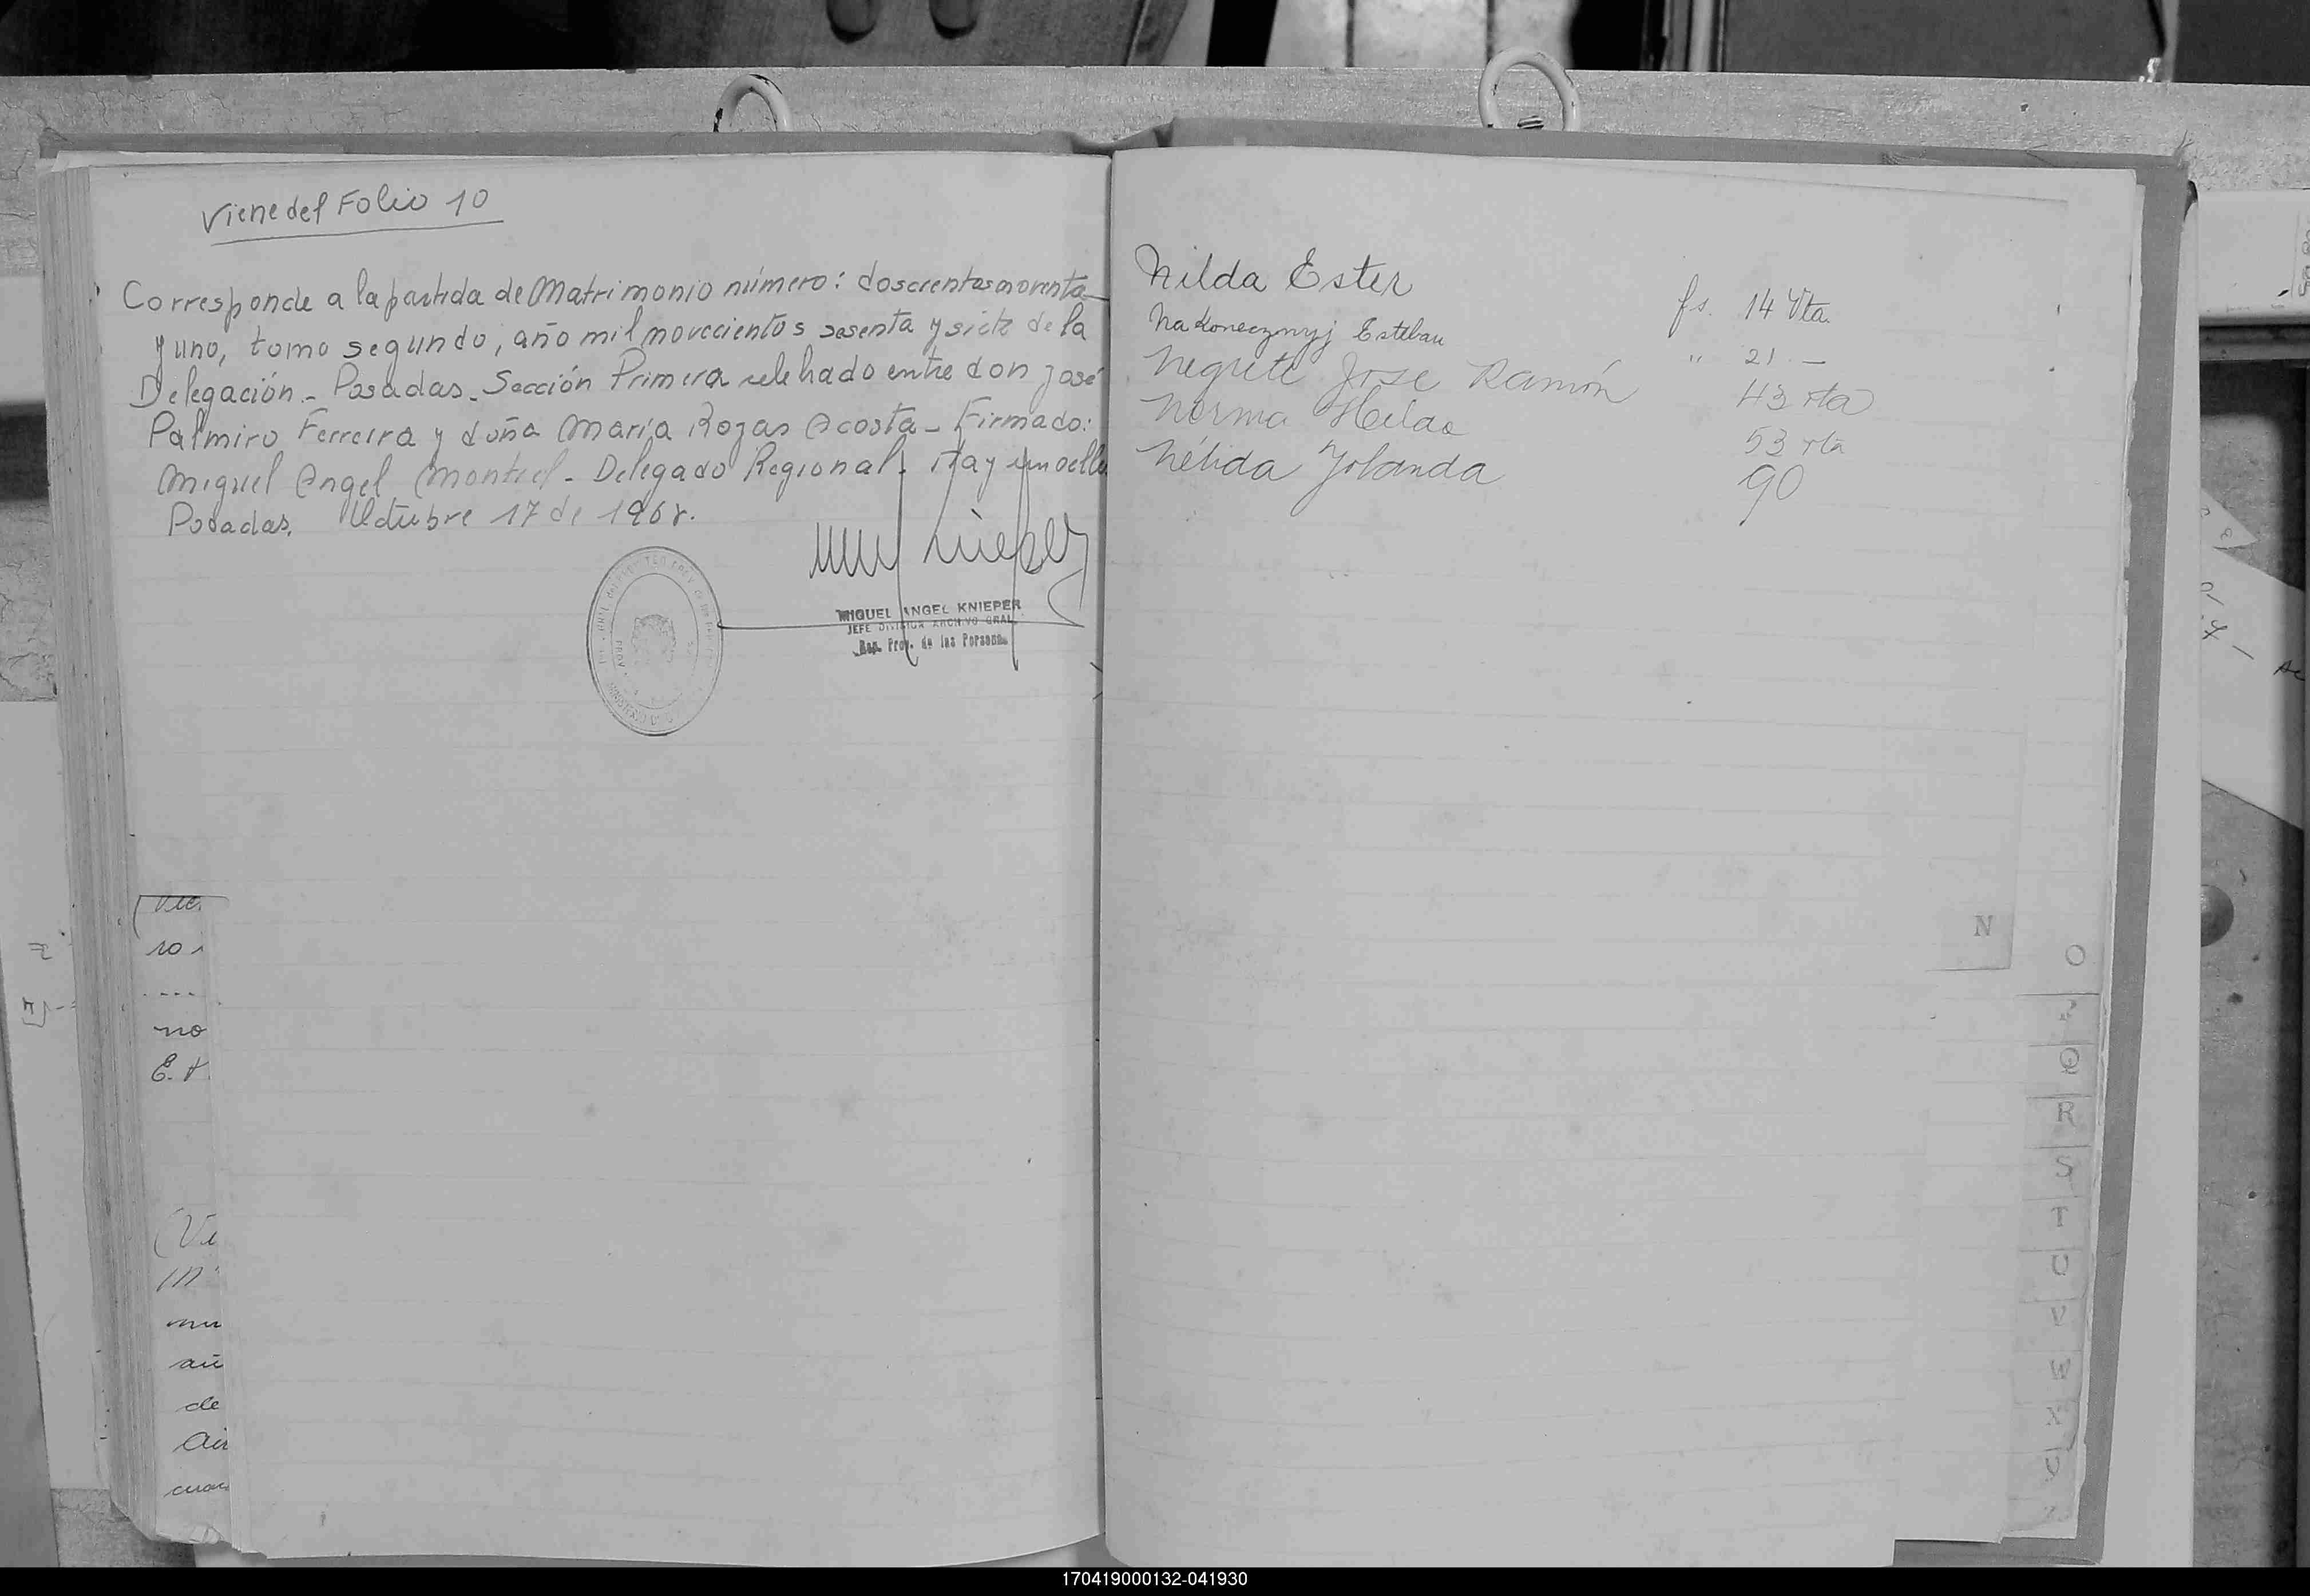 Viene del Folio 10
Corresponde a la partida de Matrimonio número: doscientos noventa
y uno, tomo segundo, año mil novecientos sesenta y siete de la
Delegación - Posadas - Sección Primera celebrado entre don José
Palmiro Ferreira y doña María Rozas Acosta - Firmado:
Miguel Angel Montiel - Delegado Regional. Hay un sello
Posadas, Octubre 17 de 1968.
MIGUEL ANGEL KNIEPER
JEFE DIVISION ARCHIVO GRAL.
Reg. Prov. de las Personas
10
no
E.
de
Nilda Ester fs. 14 Vta.
Nakonecznyj Esteban " 21 -
Negrete Jose Ramón 43 vta
Norma Hilda 53 vta
Nélida Yolanda 90
N
O
P
Q
R
S
T
U
V
W
X
170419000132-041930